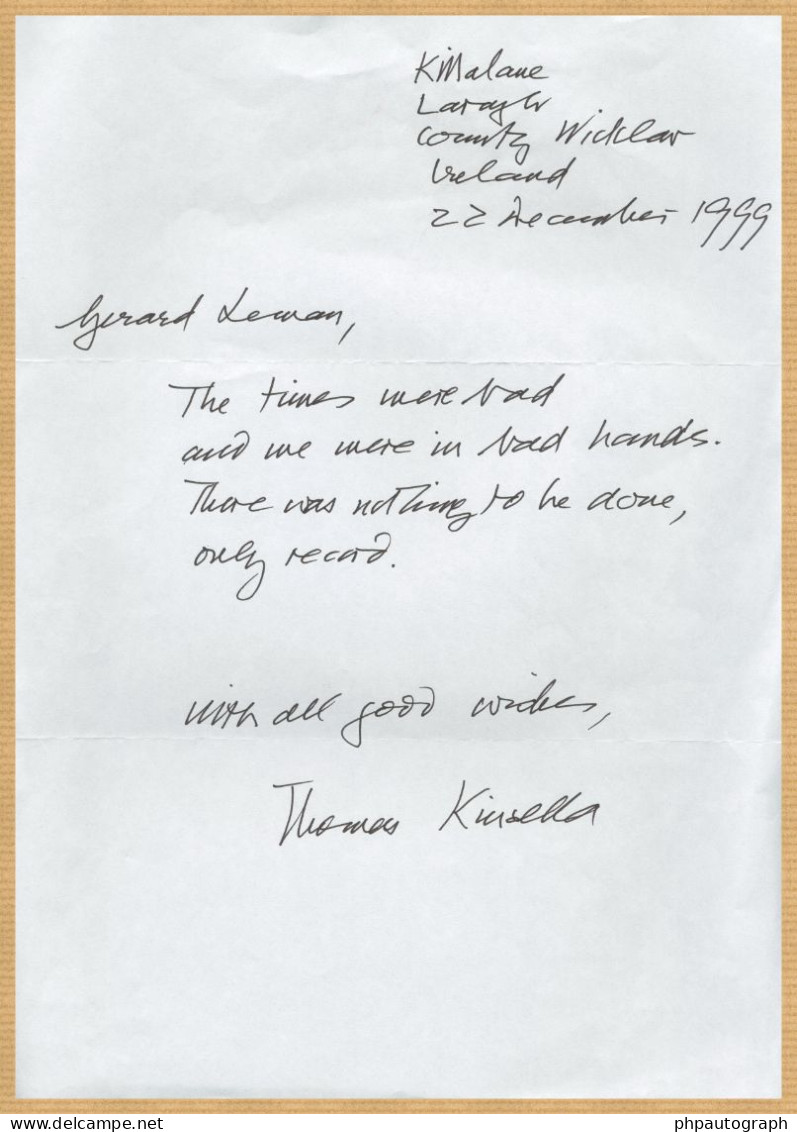 Killalane
Laragh
County Wicklow
Ireland
22 December 1999
Gerard Leman,
The times were bad
and we were in bad hands.
There was nothing to be done,
only record.
With all good wishes,
Thomas Kinsella
delcampe.net
phpautograph